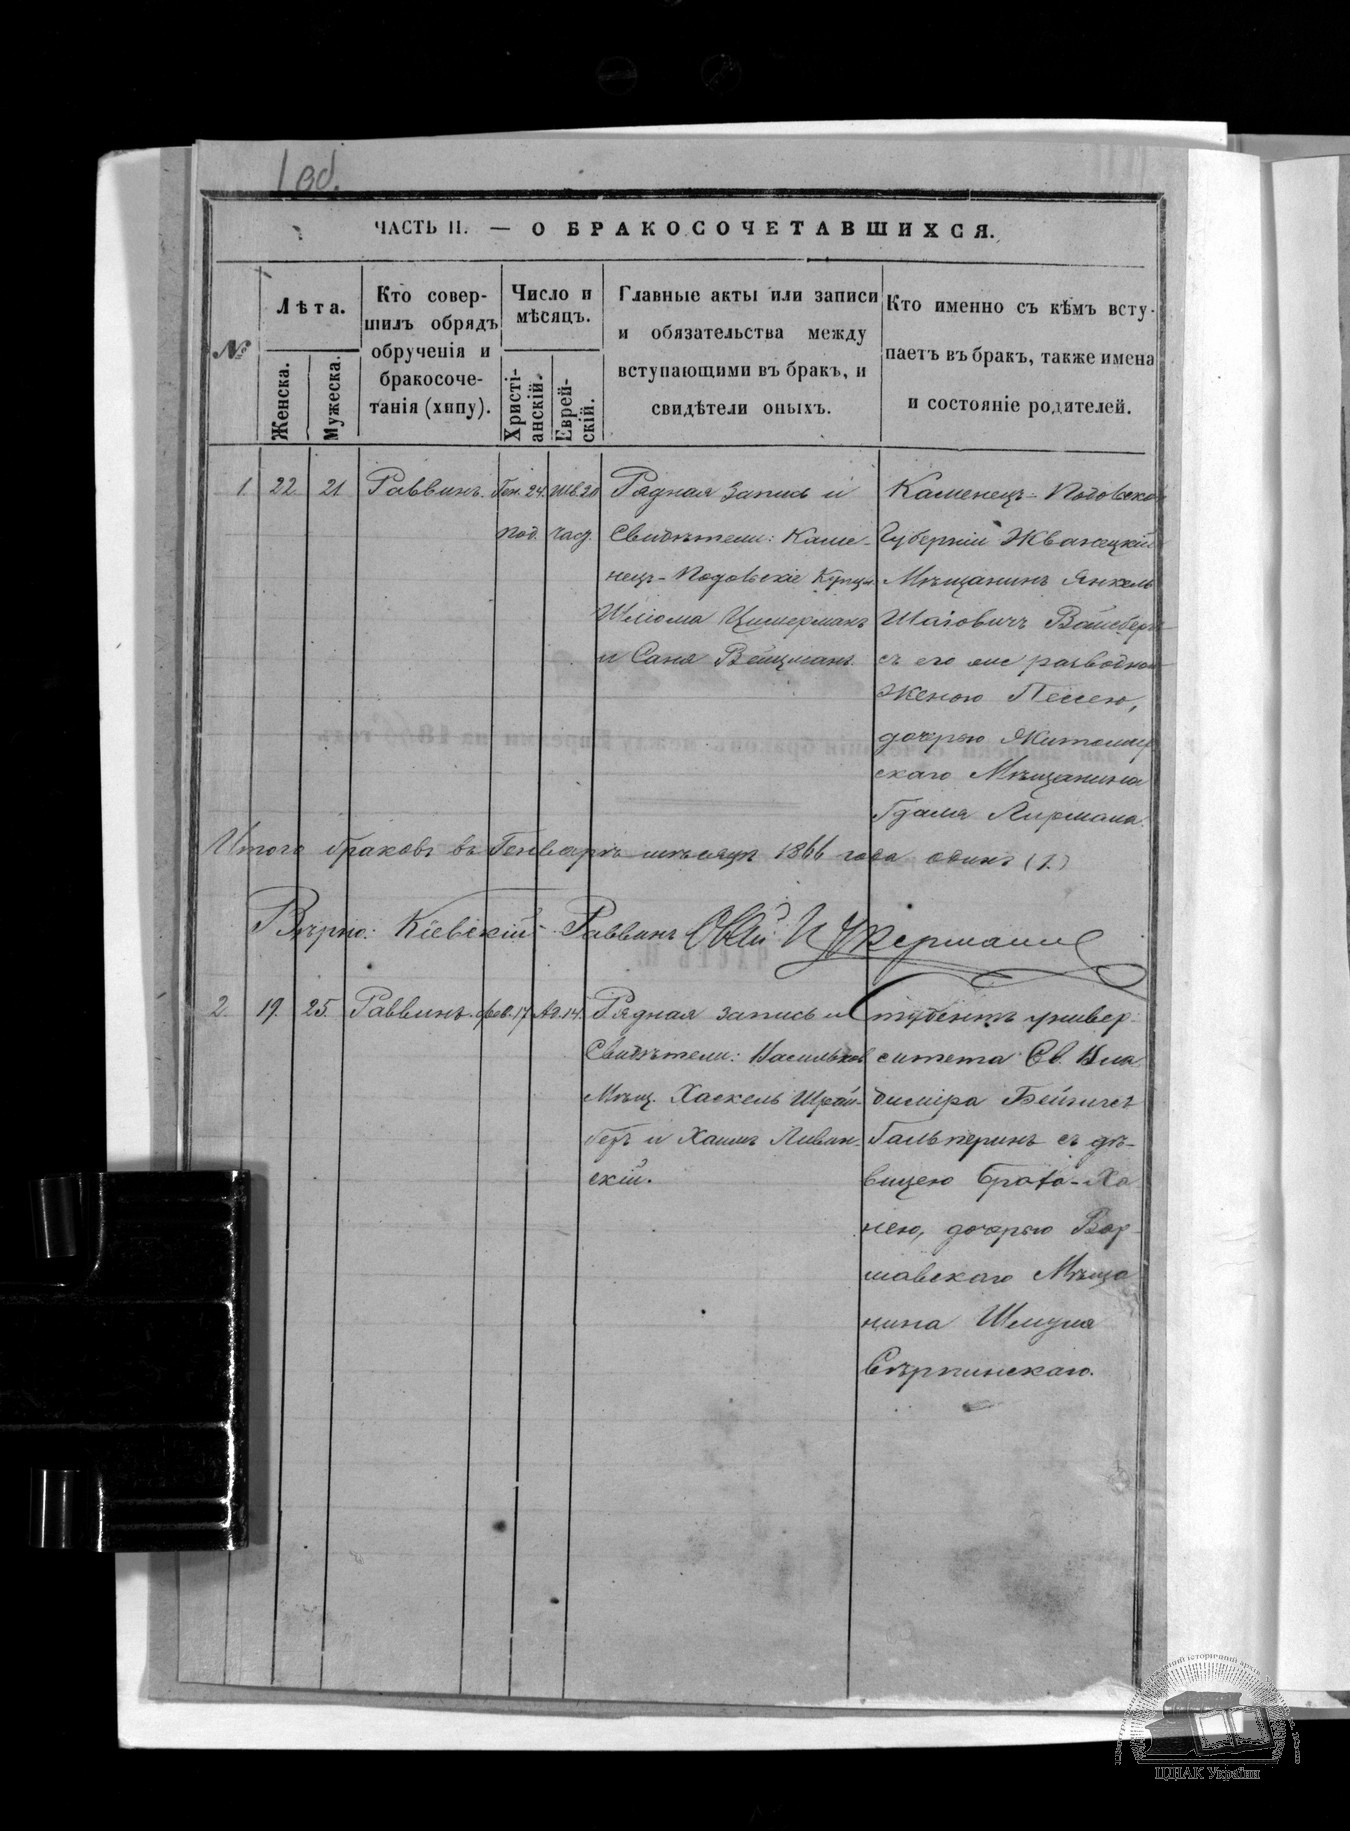 1 об.
ЧАСТЬ II. — О БРАКОСОЧЕТАВШИХСЯ.
№
Лѣта.
Женска.
Мужеска.
Кто совер-
шилъ обрядъ
обрученія и
бракосоче-
танія (хппу).
Число и
мѣсяцъ.
Христі-
анскій.
Еврей-
скій.
Главные акты или записи
и обязательства между
вступающими въ бракъ, и
свидѣтели оныхъ.
Кто именно съ кѣмъ всту-
паетъ въ бракъ, также имена
и состояніе родителей.
1 22 21 Раввинъ. Ген. 24. Шв. 20
Рядная запись и
Свидѣтели: Каме-
нецъ-Подольскіе Купцы
Шлiома Цимерманъ
и Саня Вейцманъ.
Каменецъ-Подольской
Губерніи Жванецкій
Мѣщанинъ Янкель
Шаiовичъ Вайсберъ
съ его же разводною
Женою Песею,
дочерью Житомир
скаго Мѣщанина
Гдаля Лирмана.
Итого браковъ въ Генварѣ мѣсяцѣ 1866 года одинъ (1.)
Вѣрно: Кіевскій Раввинъ Цукерманъ
2. 19. 25. Раввинъ. Фев. 17. Ад. 14.
Рядная запись и
Свидѣтели: Васильков
Мѣщ. Хаскель Шрай-
беръ и Хаимъ Ливин-
скій.
Студентъ универ-
ситета Св. Вла
диміра Бейнишъ
Гальперинъ съ дѣ-
вицею Браha-Ха
нею, дочерью Вар-
шавскаго Мѣща
нина Шмуля
Сѣрпинскаго.
ЦДІАК України